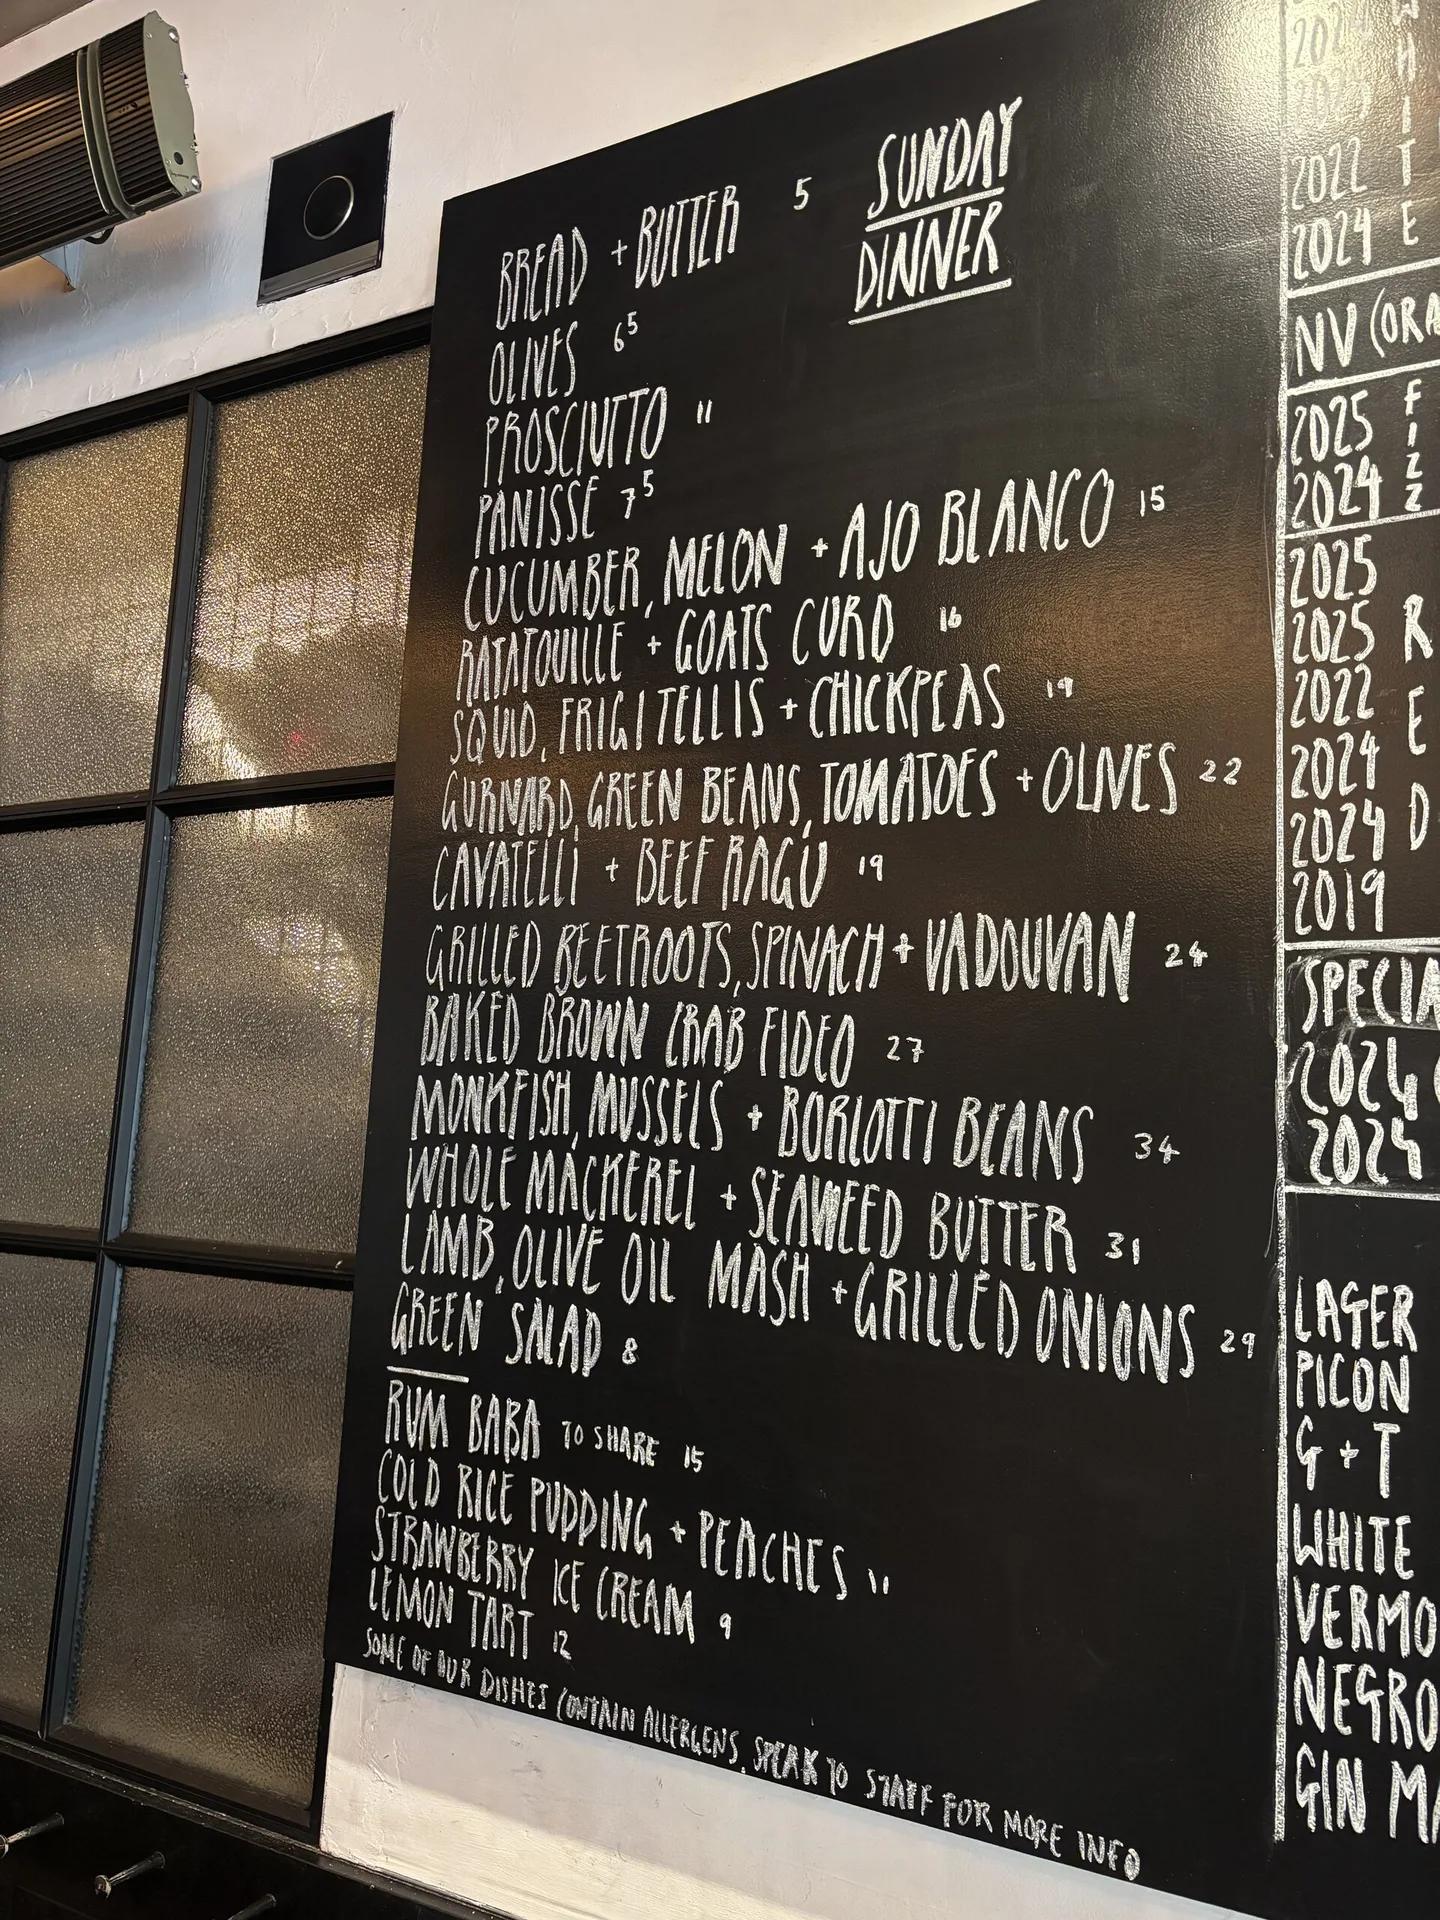 SUNDAY
DINNER
BREAD + BUTTER 5
OLIVES 6⁵
PROSCIUTTO 11
PANISSE 7⁵
CUCUMBER, MELON + AJO BLANCO 15
RATATOUILLE + GOATS CURD 16
SQUID, FRIGITELLIS + CHICKPEAS 19
GURNARD, GREEN BEANS, TOMATOES + OLIVES 22
CAVATELLI + BEEF RAGÙ 19
GRILLED BEETROOTS, SPINACH + VADOUVAN 24
BAKED BROWN CRAB FIDEO 27
MONKFISH, MUSSELS + BORLOTTI BEANS 34
WHOLE MACKEREL + SEAWEED BUTTER 31
LAMB, OLIVE OIL MASH + GRILLED ONIONS 29
GREEN SALAD 8
RUM BABA TO SHARE 15
COLD RICE PUDDING + PEACHES 11
STRAWBERRY ICE CREAM 9
LEMON TART 12
SOME OF OUR DISHES CONTAIN ALLERGENS, SPEAK TO STAFF FOR MORE INFO
WHITE
2022
2024
NV (ORA
FIZZ
2025
2024
RED
2025
2025
2022
2024
2024
2019
SPECIA
2024
2024
LAGER
PICON
G + T
WHITE
VERMO
NEGRO
GIN MA